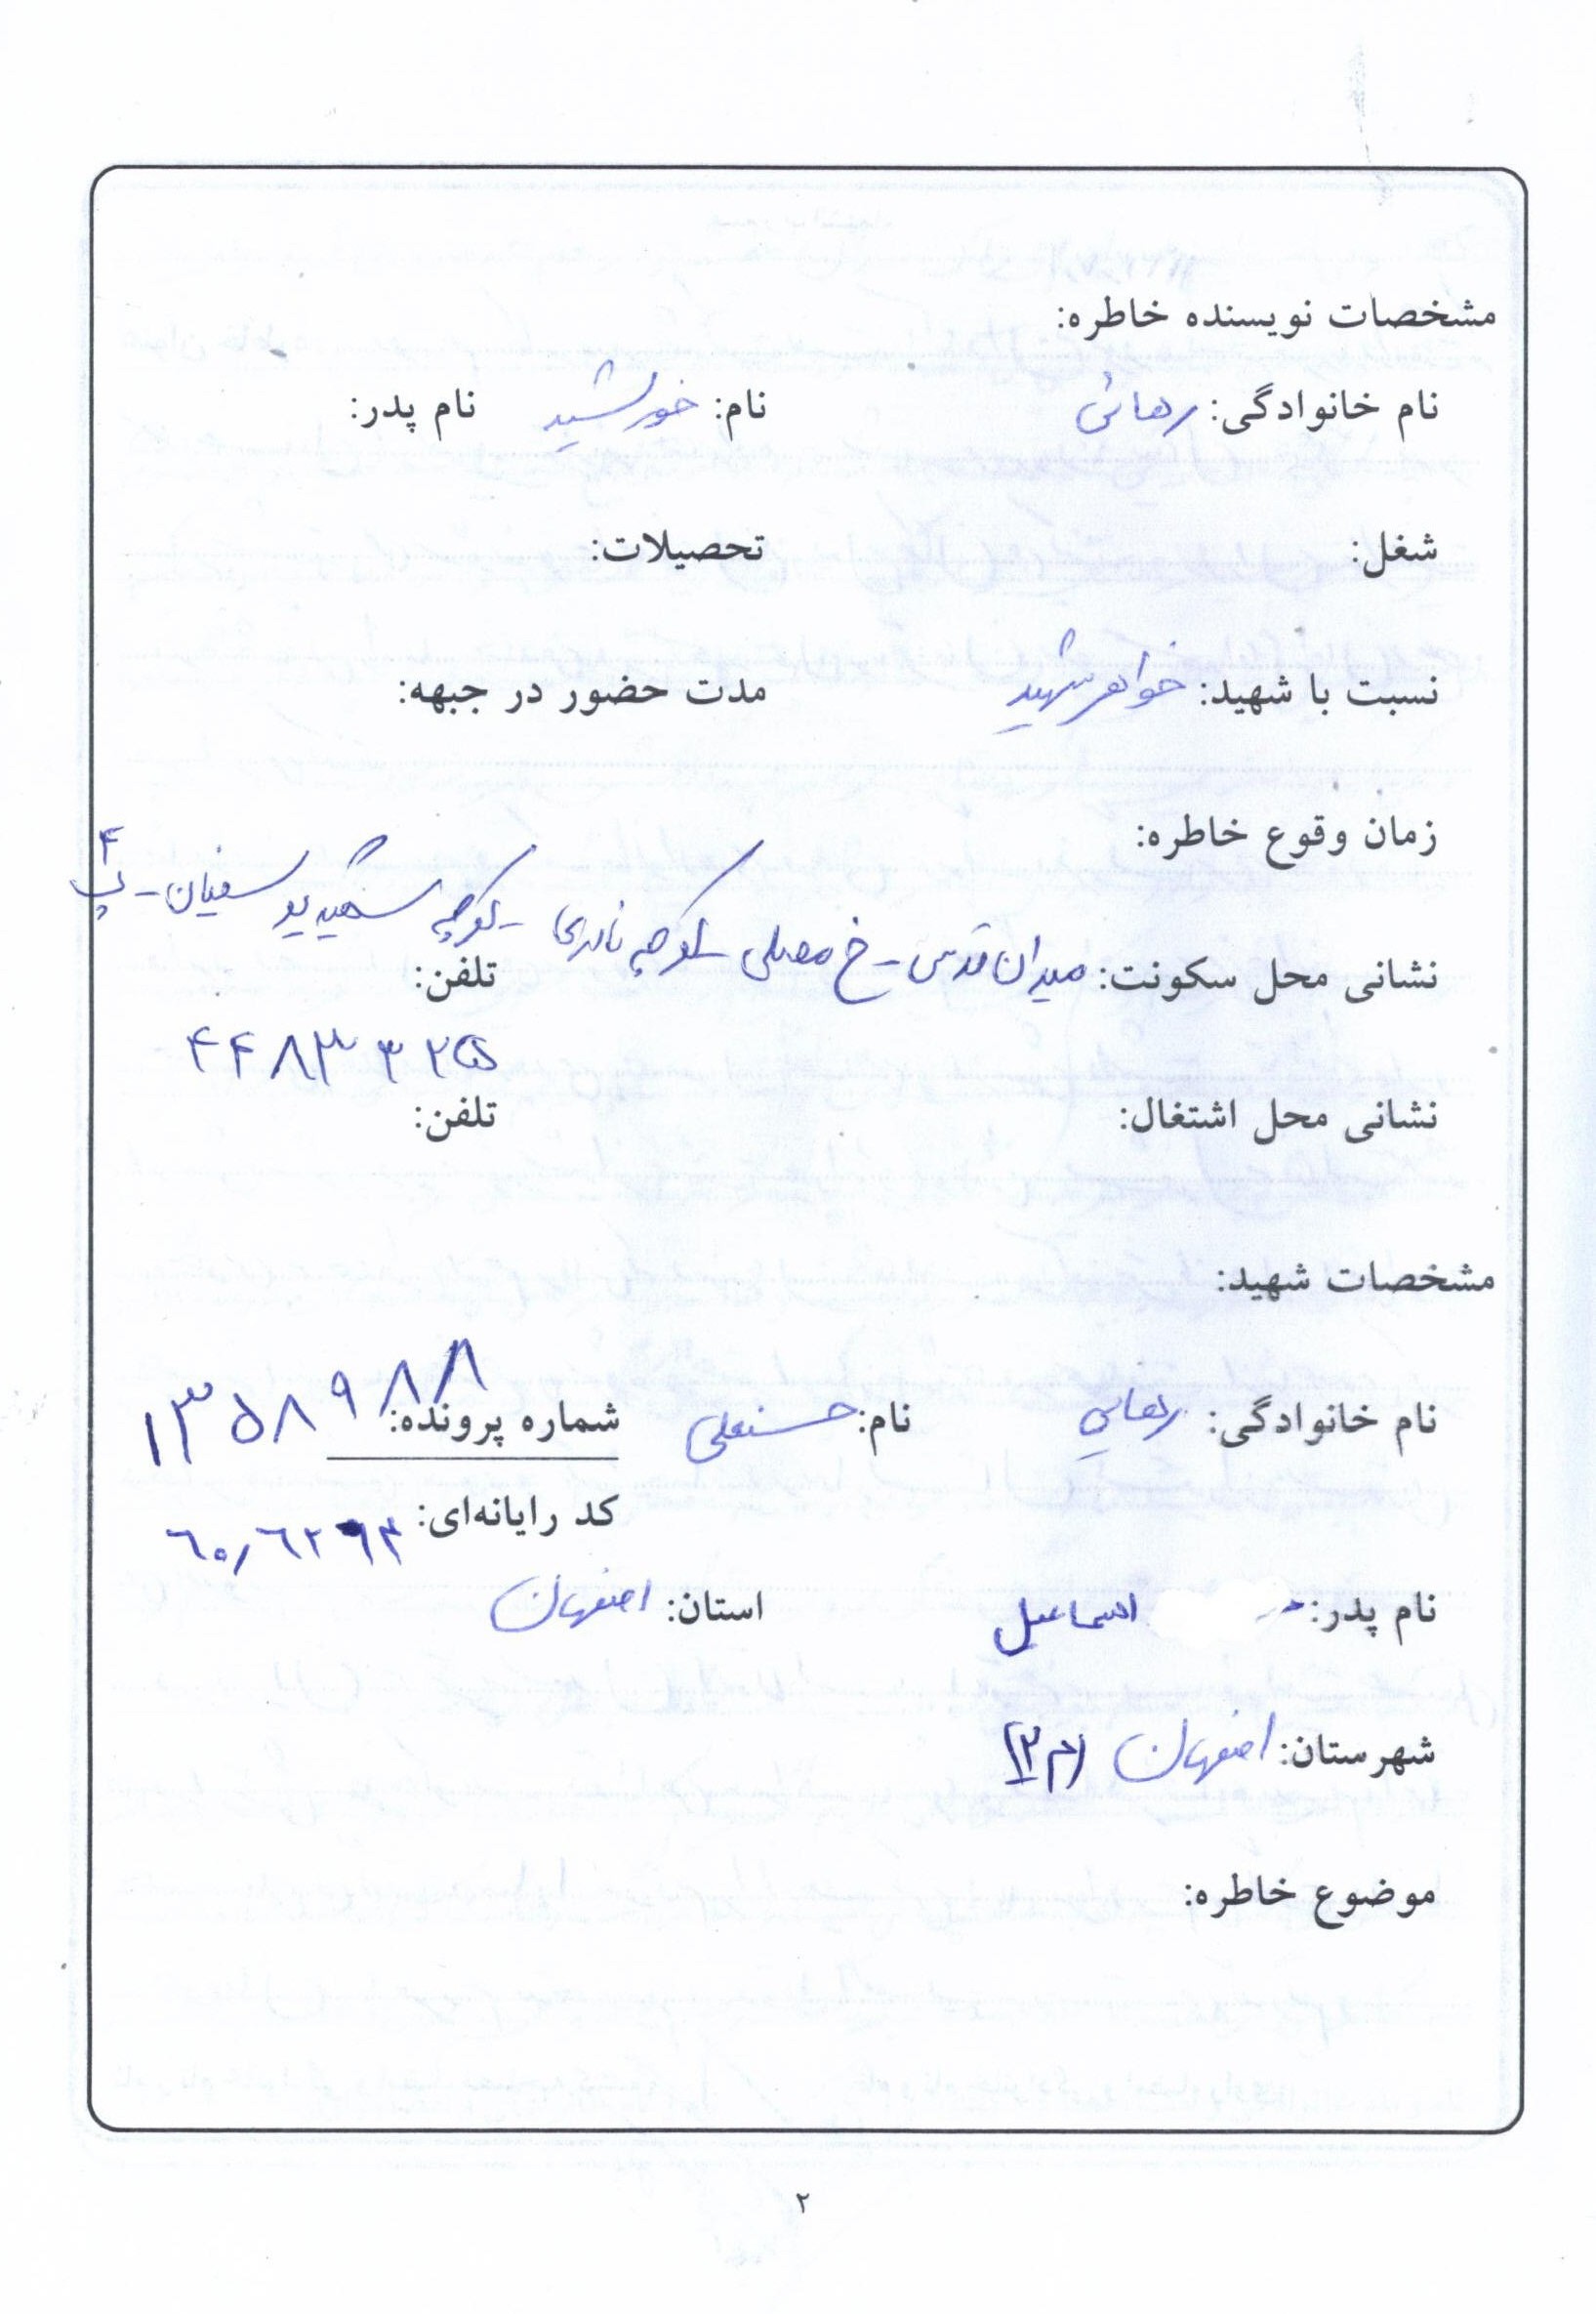 مشخصات نویسنده خاطره:
نام خانوادگی: رهائی نام: خورشید نام پدر:
شغل: تحصیلات:
نسبت با شهید: خواهر شهید مدت حضور در جبهه:
زمان وقوع خاطره:
نشانی محل سکونت: میدان قدس - خ مصلی - کوچه نادری - کوچه شهید یوسفیان - پ ۴
تلفن:
۴۴۸۳۳۲۵
نشانی محل اشتغال: تلفن:
مشخصات شهید:
نام خانوادگی: رهایی نام: حسنعلی شماره پرونده: ۱۳۵۸۹۸۸
کد رایانه‌ای:
نام پدر: اسماعیل استان: اصفهان
شهرستان: اصفهان (م۲)
موضوع خاطره:
۲